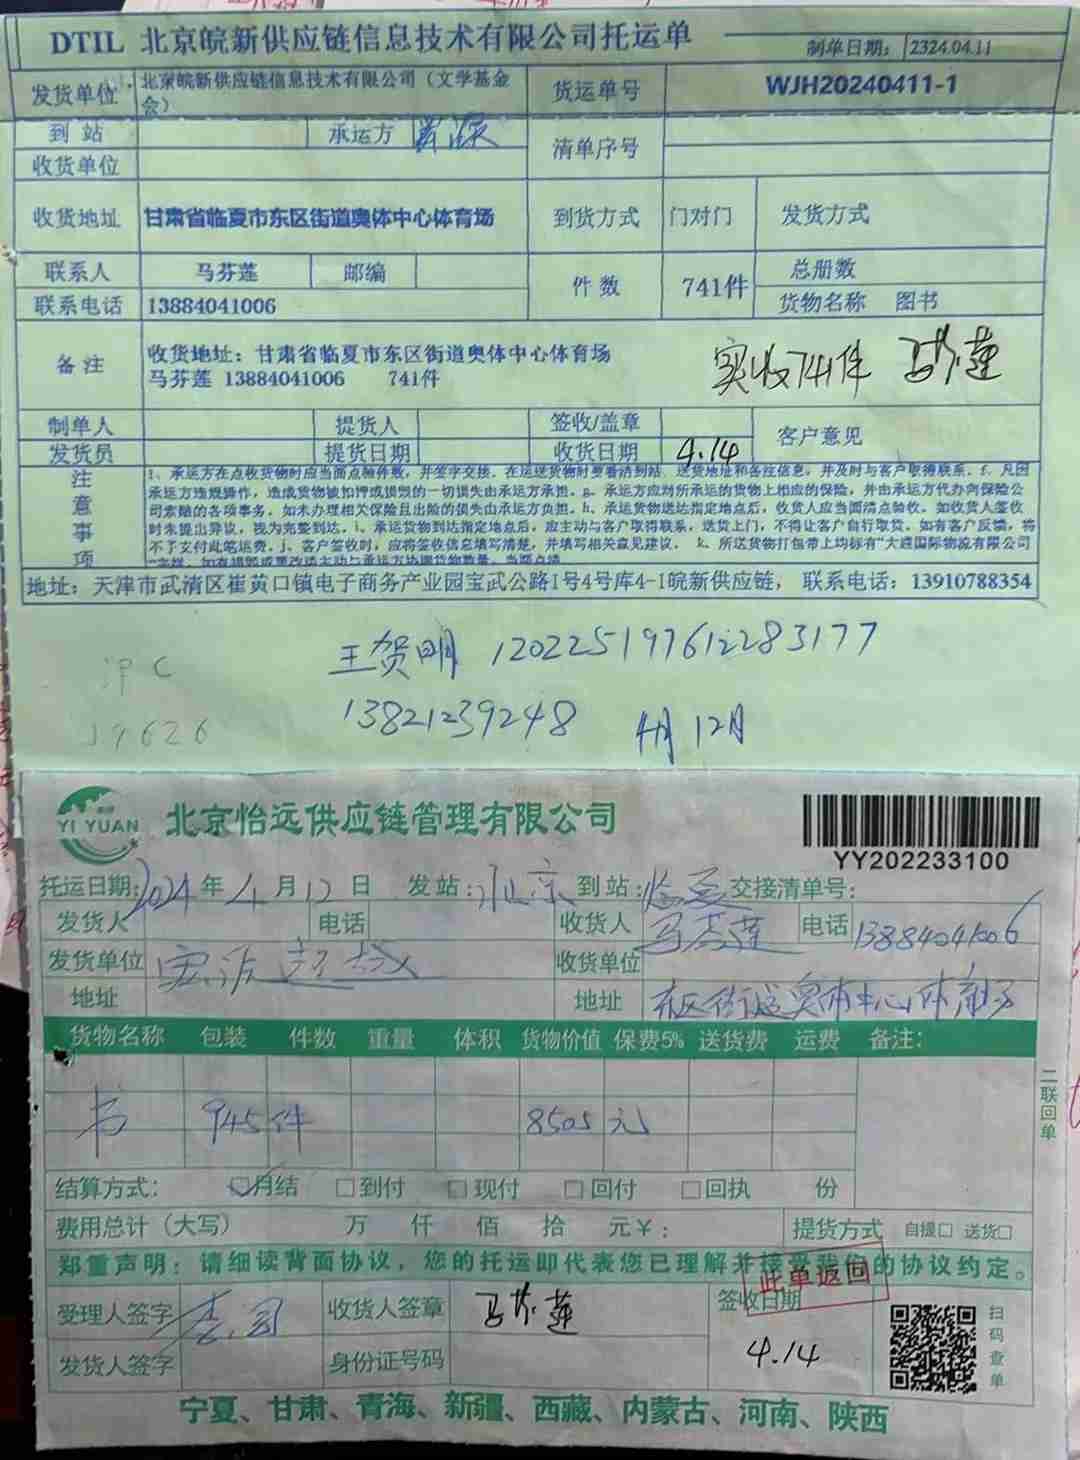 DTIL 北京皖新供应链信息技术有限公司托运单
制单日期： 2324.04.11
发货单位 北京皖新供应链信息技术有限公司（文学基金会） 货运单号 WJH20240411-1
到 站 承运方 清单序号
收货单位
收货地址 甘肃省临夏市东区街道奥体中心体育场 到货方式 门对门 发货方式
联系人 马芬莲 邮编 件 数 741件 总册数
联系电话 13884041006 货物名称 图书
备 注 收货地址：甘肃省临夏市东区街道奥体中心体育场
马芬莲 13884041006 741件
实收741件 马芬莲
制单人 提货人 签收/盖章 客户意见
发货员 提货日期 收货日期 4.14
注意事项
1、承运方在点收货物时应当面点验件数，并签字交接。在运送货物时要看清到站、送货地址和备注信息，并及时与客户取得联系。f、凡因
承运方违规操作，造成货物被扣押或损毁的一切损失由承运方承担。g、承运方应对所承运的货物上相应的保险，并由承运方代办向保险公
司索赔的各项事务。如未办理相关保险且出险的损失由承运方负担。h、承运货物送达指定地点后，收货人应当面清点验收。如收货人签收
时未提出异议，视为完整到达。i、承运货物到达指定地点后，应主动与客户取得联系，送货上门，不得让客户自行取货。如有客户反馈，将
不予支付此笔运费。j、客户签收时，应将签收信息填写清楚，并填写相关意见建议。k、所送货物打包带上均标有"大通国际物流有限公司
地址：天津市武清区崔黄口镇电子商务产业园宝武公路1号4号库4-1皖新供应链， 联系电话：13910788354
王贺明 120225197612283177
13821239248 4月12日
沪C
19626
YI YUAN 北京怡远供应链管理有限公司
YY202233100
托运日期:2024年4月12日 发站:北京 到站:临夏 交接清单号:
发货人 电话 收货人 马芬莲 电话 13884041006
发货单位 收货单位
地址 地址 东区街道奥体中心体育场
货物名称 包装 件数 重量 体积 货物价值 保费5% 送货费 运费 备注:
书 945件 8505元
二联回单
结算方式: ☑月结 □到付 □现付 □回付 □回执 份
费用总计（大写） 万 仟 佰 拾 元￥: 提货方式 自提□ 送货□
郑重声明：请细读背面协议，您的托运即代表您已理解并接受背面的协议约定。
此单返回
受理人签字 收货人签章 马芬莲 签收日期
4.14
发货人签字 身份证号码
扫码查单
宁夏、甘肃、青海、新疆、西藏、内蒙古、河南、陕西